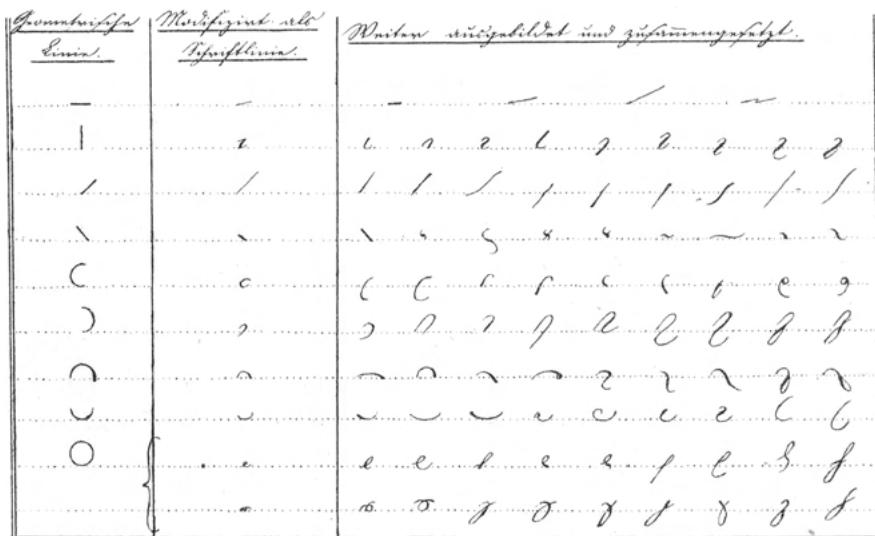 Geometrische
Linie.
Modifizirt als
Schriftlinie.
Weiter ausgebildet und zusammengesetzt.